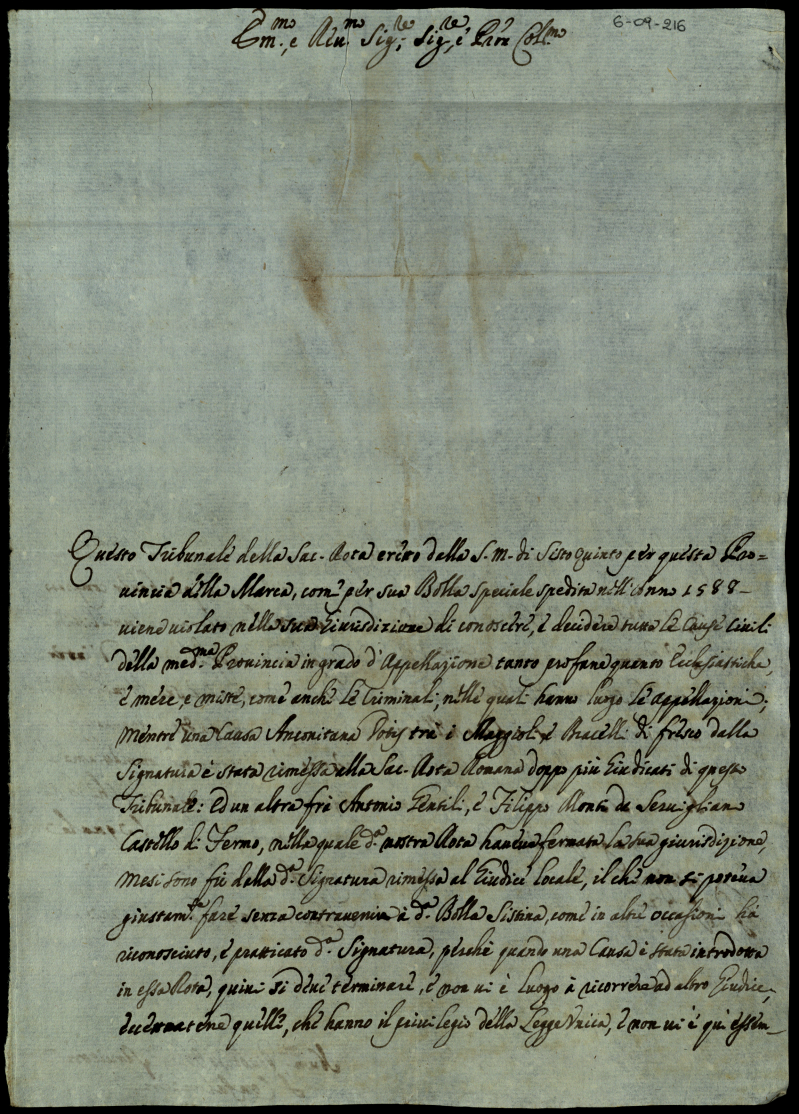 6-09-216
Em.mo, e Reu.mo Sig.re, Sig.re, e Pron Col.mo
Questo Tribunale della Sac. Rota eretto dalla S. M. di Sisto Quinto per questa Pro=
uincia della Marca, com'è per sua Bolla speciale spedita nell'Anno 1588
uiene uiolato nella sua Giurisdizione di conoscere, e decidere tutte le Cause Ciuili
della med.ma Prouincia in grado d'Appellazione tanto profane quanto Ecclesiastiche,
è mere, e miste, come anche le Criminali, nelle quali hanno luogo le appellazioni;
mentre una Causa Anconitana Dotis trà i Maggioli, e Bracelli di fresco dalla
Signatura è stata rimessa alla Sac. Rota Romana doppo più Giudicati di questo
Tribunale: Ed un altra frà Antonio Gentili, e Filippo Monti da Seruigliano
Castello di Fermo, nella quale d.a nostra Rota haueua fermata la sua giurisdizione,
mesi sono fù dalla d.a Signatura rimessa al Giudice locale, il che non si poteua
giustam.te fare senza contrauenire à d.a Bolla Sistina, come in altre occasioni hà
riconosciuto, e pratticato d.a Signatura, perche quando una Causa è stata introdotta
in essa Rota, quiui si deue terminare, e non ui è luogo à ricorrere ad altro Giudice,
eccettuatone quelle, che hanno il priuilegio della Legge Vnica, e non ui è qui essem-